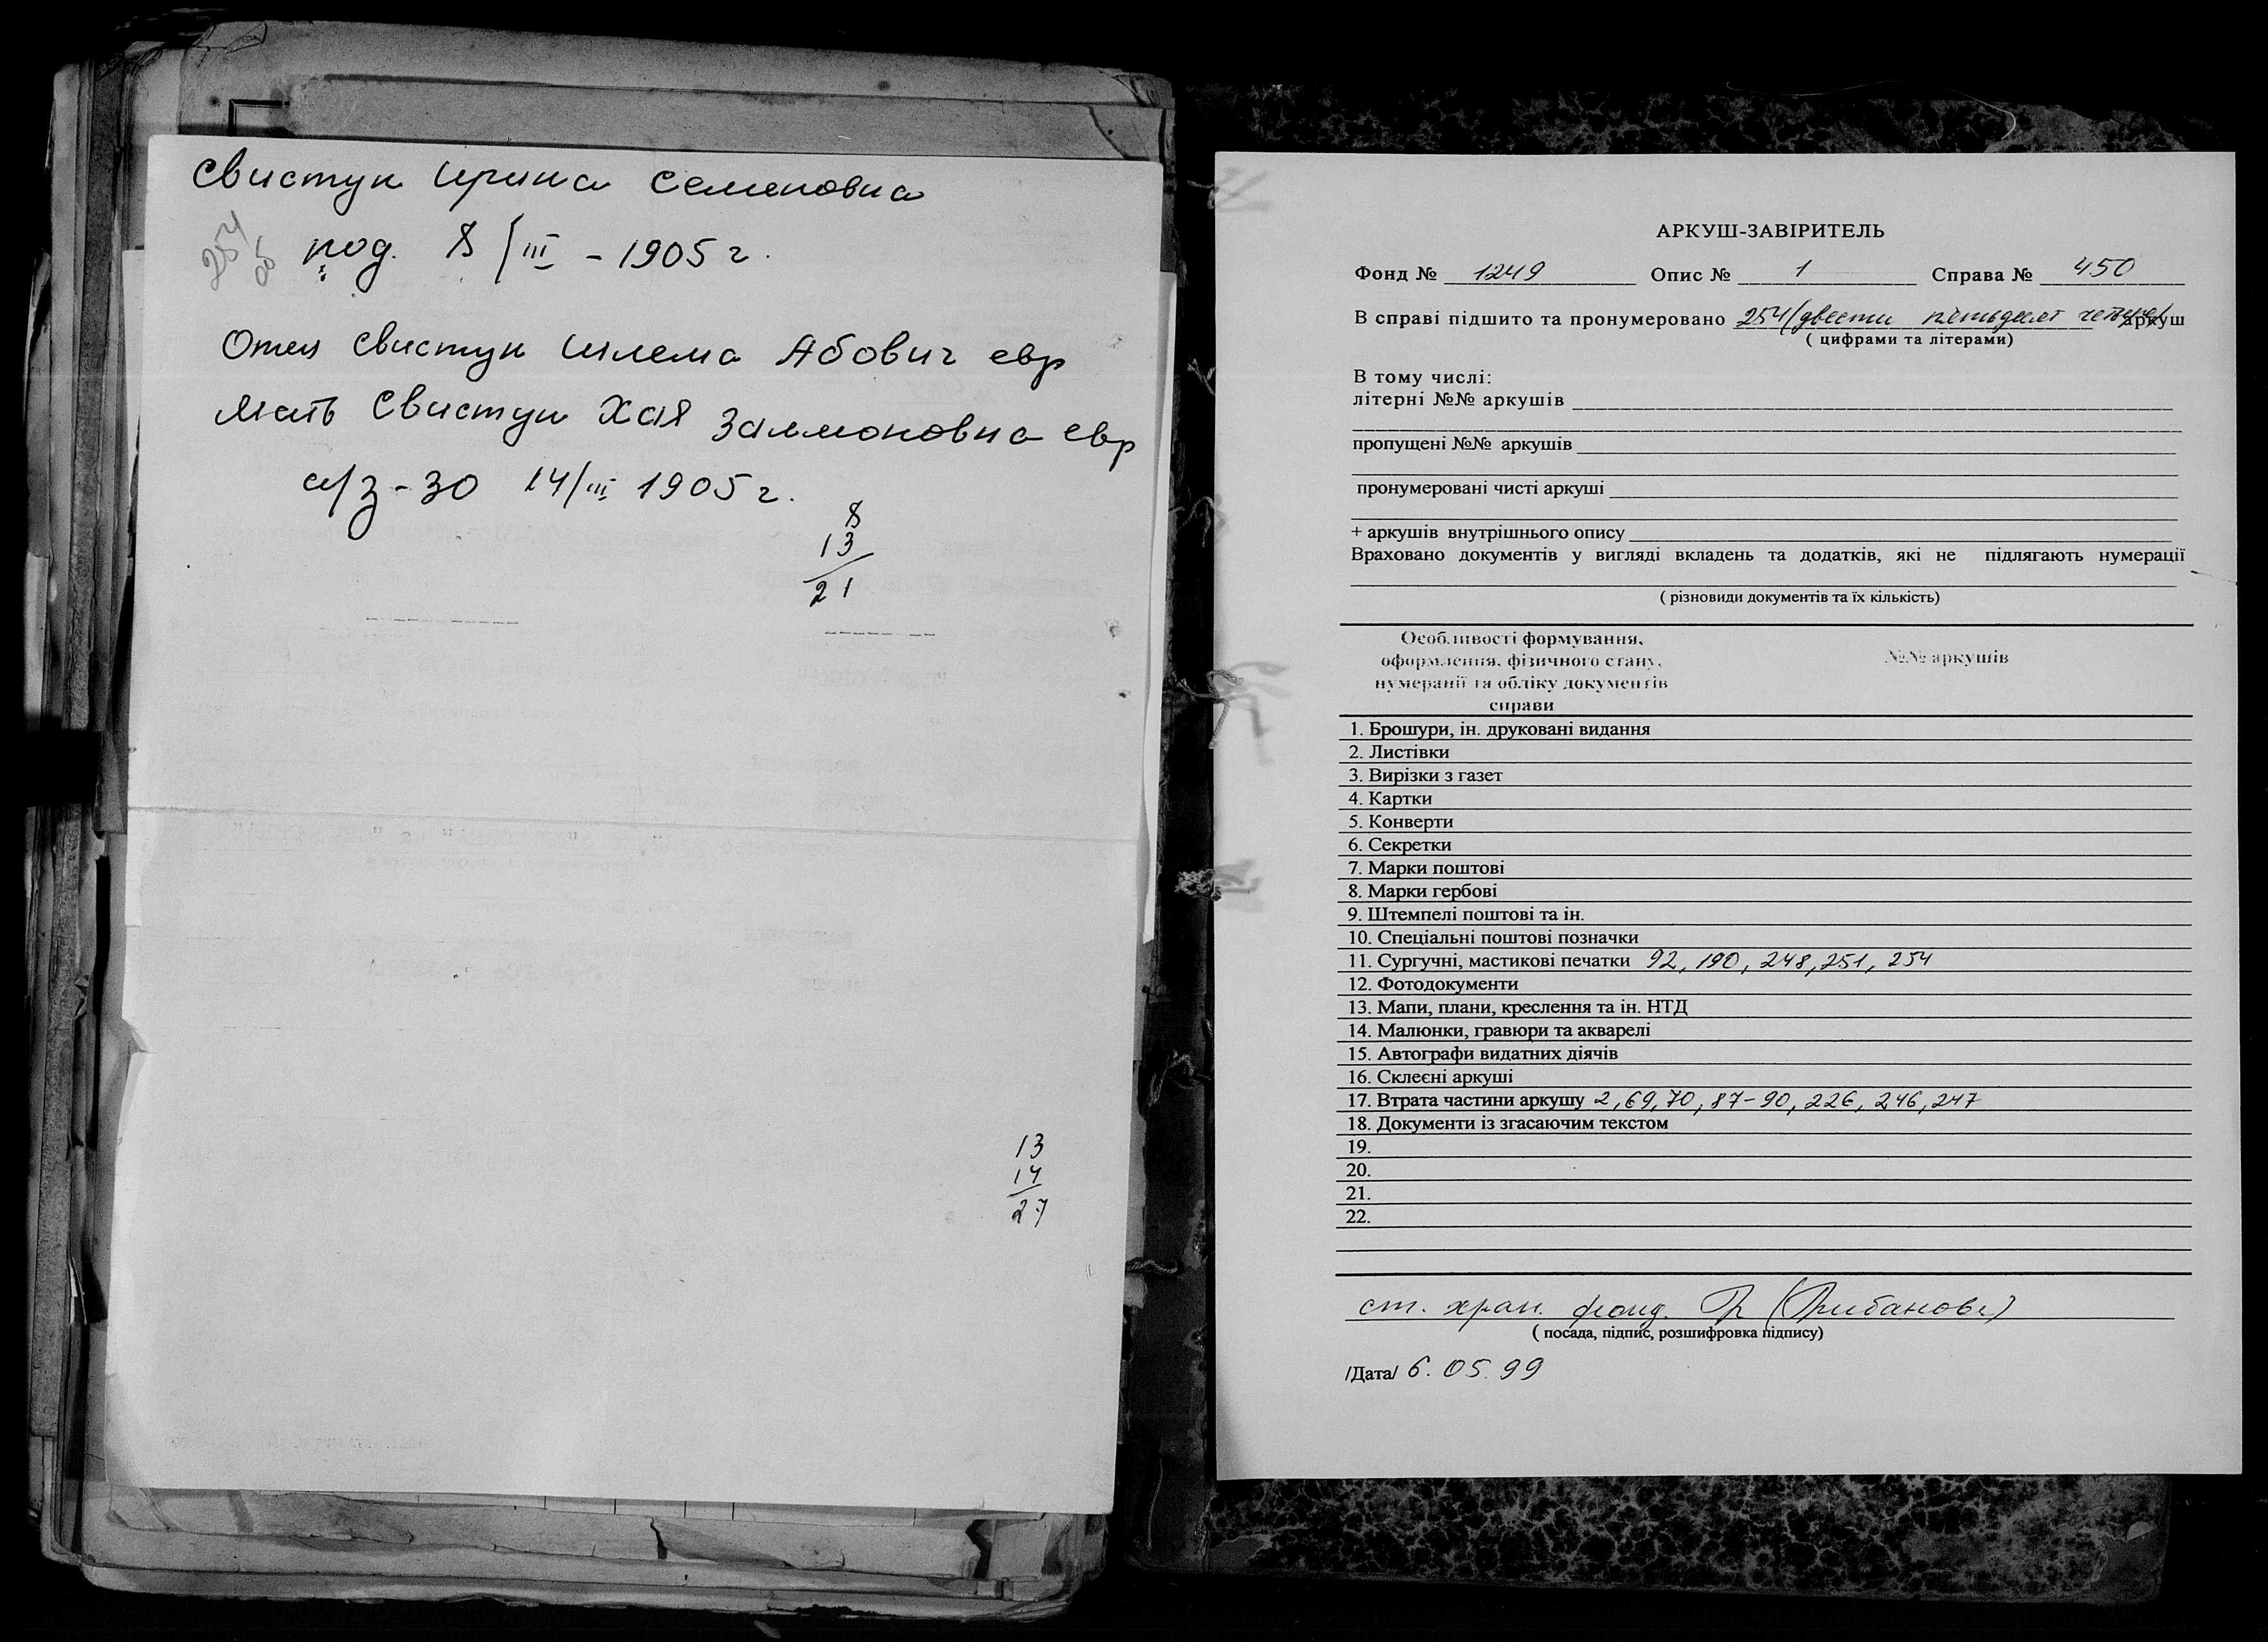 Свистун Ирина Семеновна
254
об
род. 8/III - 1905 г.
Отец Свистун Шлема Абович евр
Мать Свистун Хая Залмоновна евр
а/з - 30 14/III 1905 г.
8
13
21
13
14
27
АРКУШ-ЗАВІРИТЕЛЬ
Фонд № 1249 Опис № 1 Справа № 450
В справі підшито та пронумеровано 254/двести пятьдесят четыре/ аркуш
( цифрами та літерами)
В тому числі:
літерні №№ аркушів
пропущені №№ аркушів
пронумеровані чисті аркуші
+ аркушів внутрішнього опису
Враховано документів у вигляді вкладень та додатків, які не підлягають нумерації
( різновиди документів та їх кількість)
Особливості формування, оформлення, фізичного стану, нумерації та обліку документів справи №№ аркушів
1. Брошури, ін. друковані видання
2. Листівки
3. Вирізки з газет
4. Картки
5. Конверти
6. Секретки
7. Марки поштові
8. Марки гербові
9. Штемпелі поштові та ін.
10. Спеціальні поштові позначки
11. Сургучні, мастикові печатки 92, 190, 248, 251, 254
12. Фотодокументи
13. Мапи, плани, креслення та ін. НТД
14. Малюнки, гравюри та акварелі
15. Автографи видатних діячів
16. Склеєні аркуші
17. Втрата частини аркушу 2, 69, 70, 87-90, 226, 246, 247
18. Документи із згасаючим текстом
19.
20.
21.
22.
ст. хран. фонд.
( посада, підпис, розшифровка підпису)
/Дата/ 6.05.99